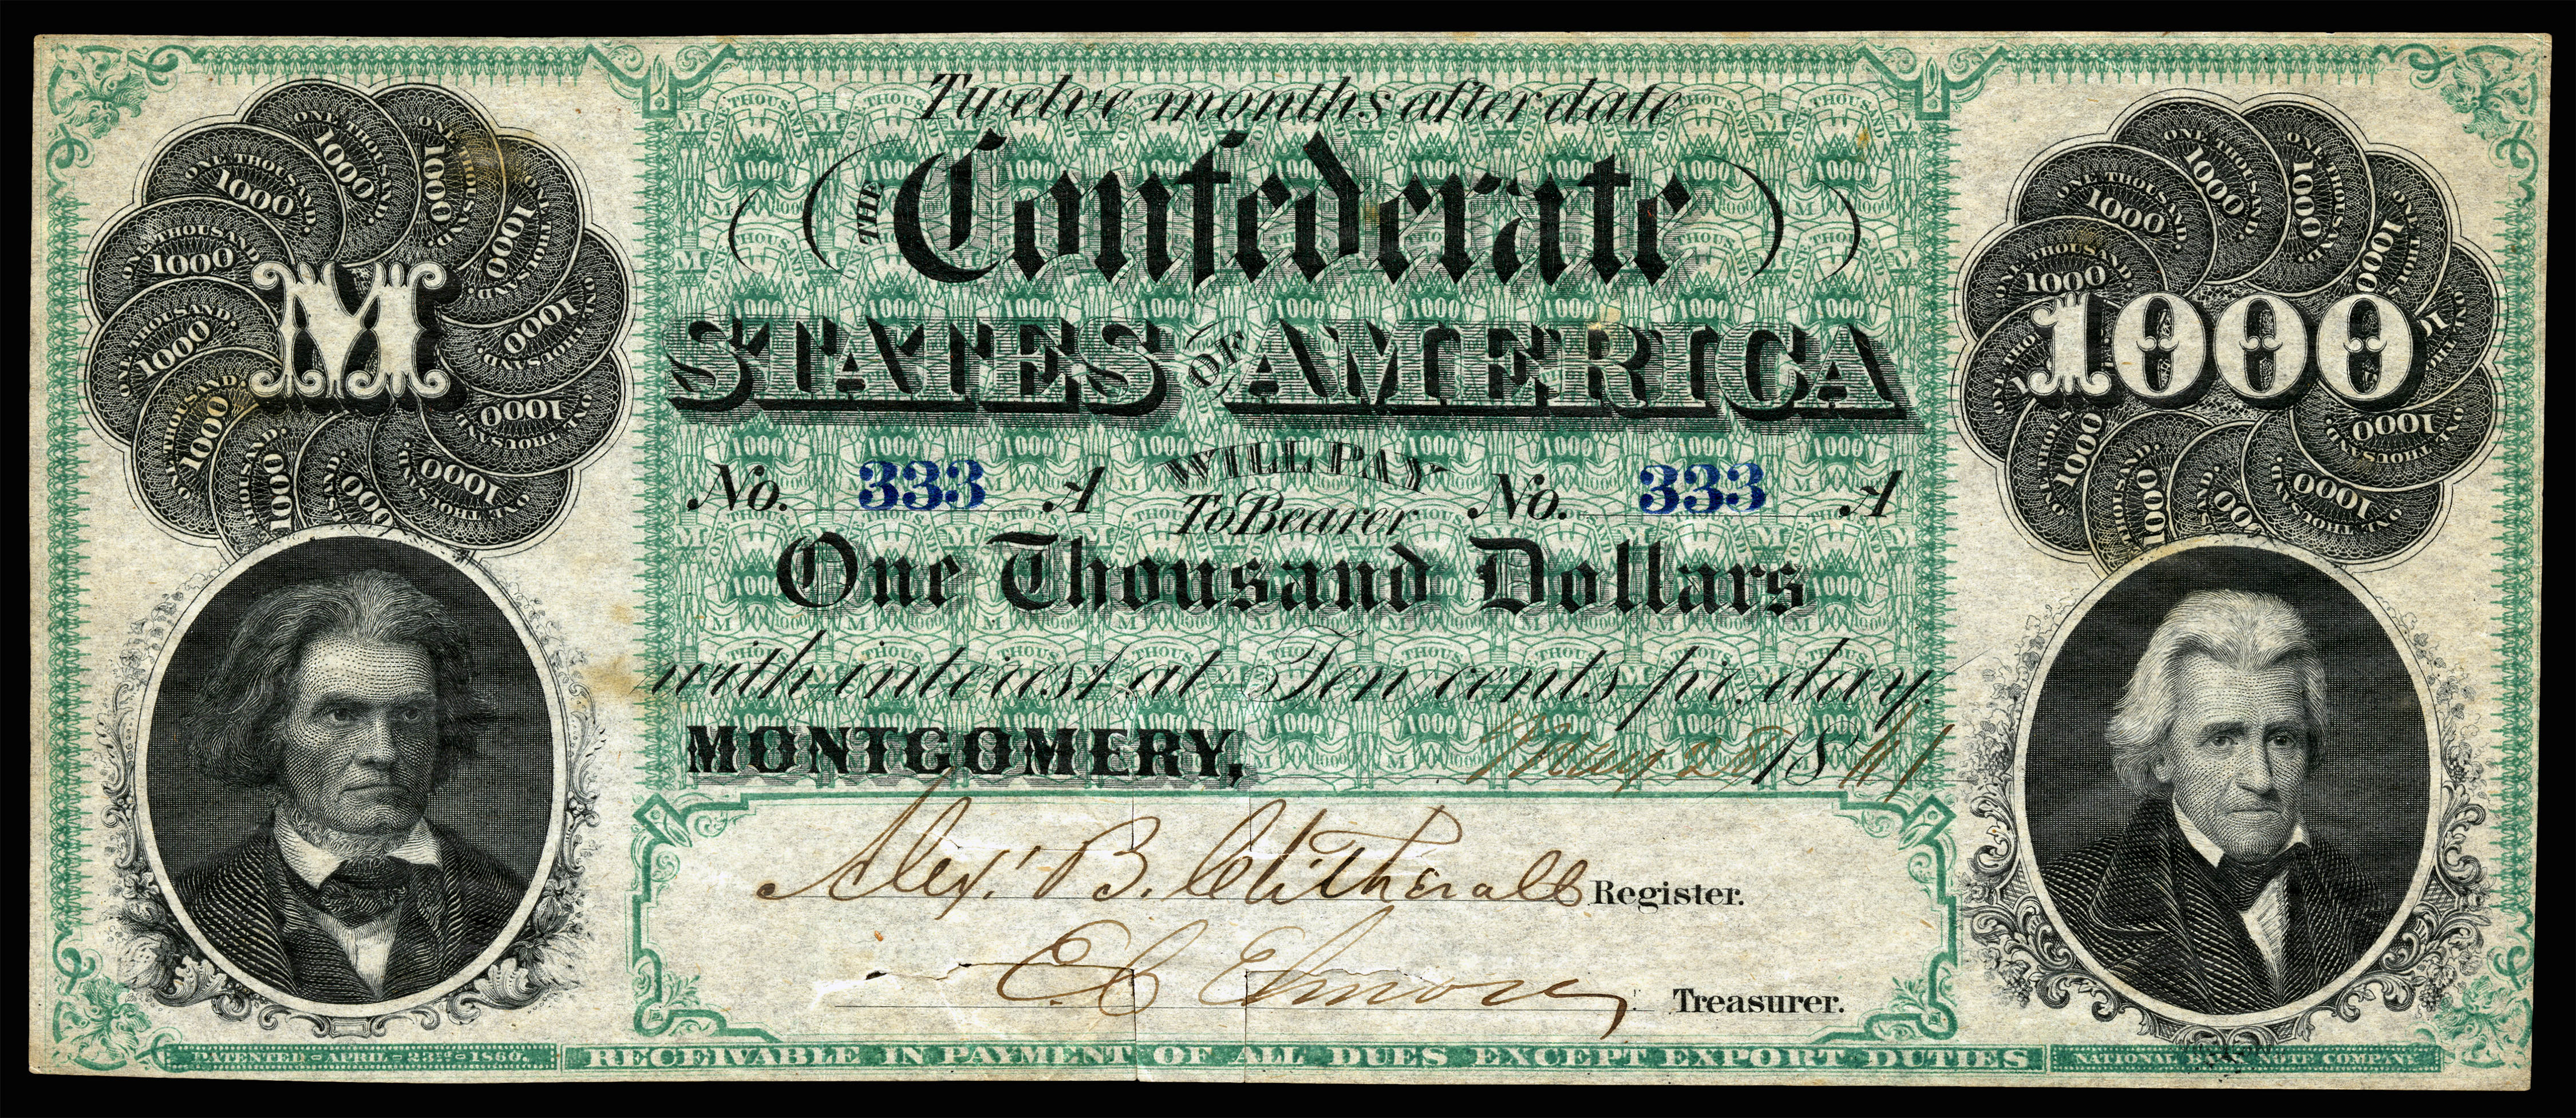 Twelve months after date
THE Confederate
STATES OF AMERICA
No. 333 A WILL PAY No. 333 A
To Bearer
One Thousand Dollars
with interest at Ten cents pr. day.
MONTGOMERY, May 28 1861
Alex. B. Clitherall Register.
E C Elmore Treasurer.
PATENTED APRIL 23RD 1860.
RECEIVABLE IN PAYMENT OF ALL DUES EXCEPT EXPORT DUTIES
NATIONAL BANK NOTE COMPANY
M
1000
ONE THOUSAND.
1000